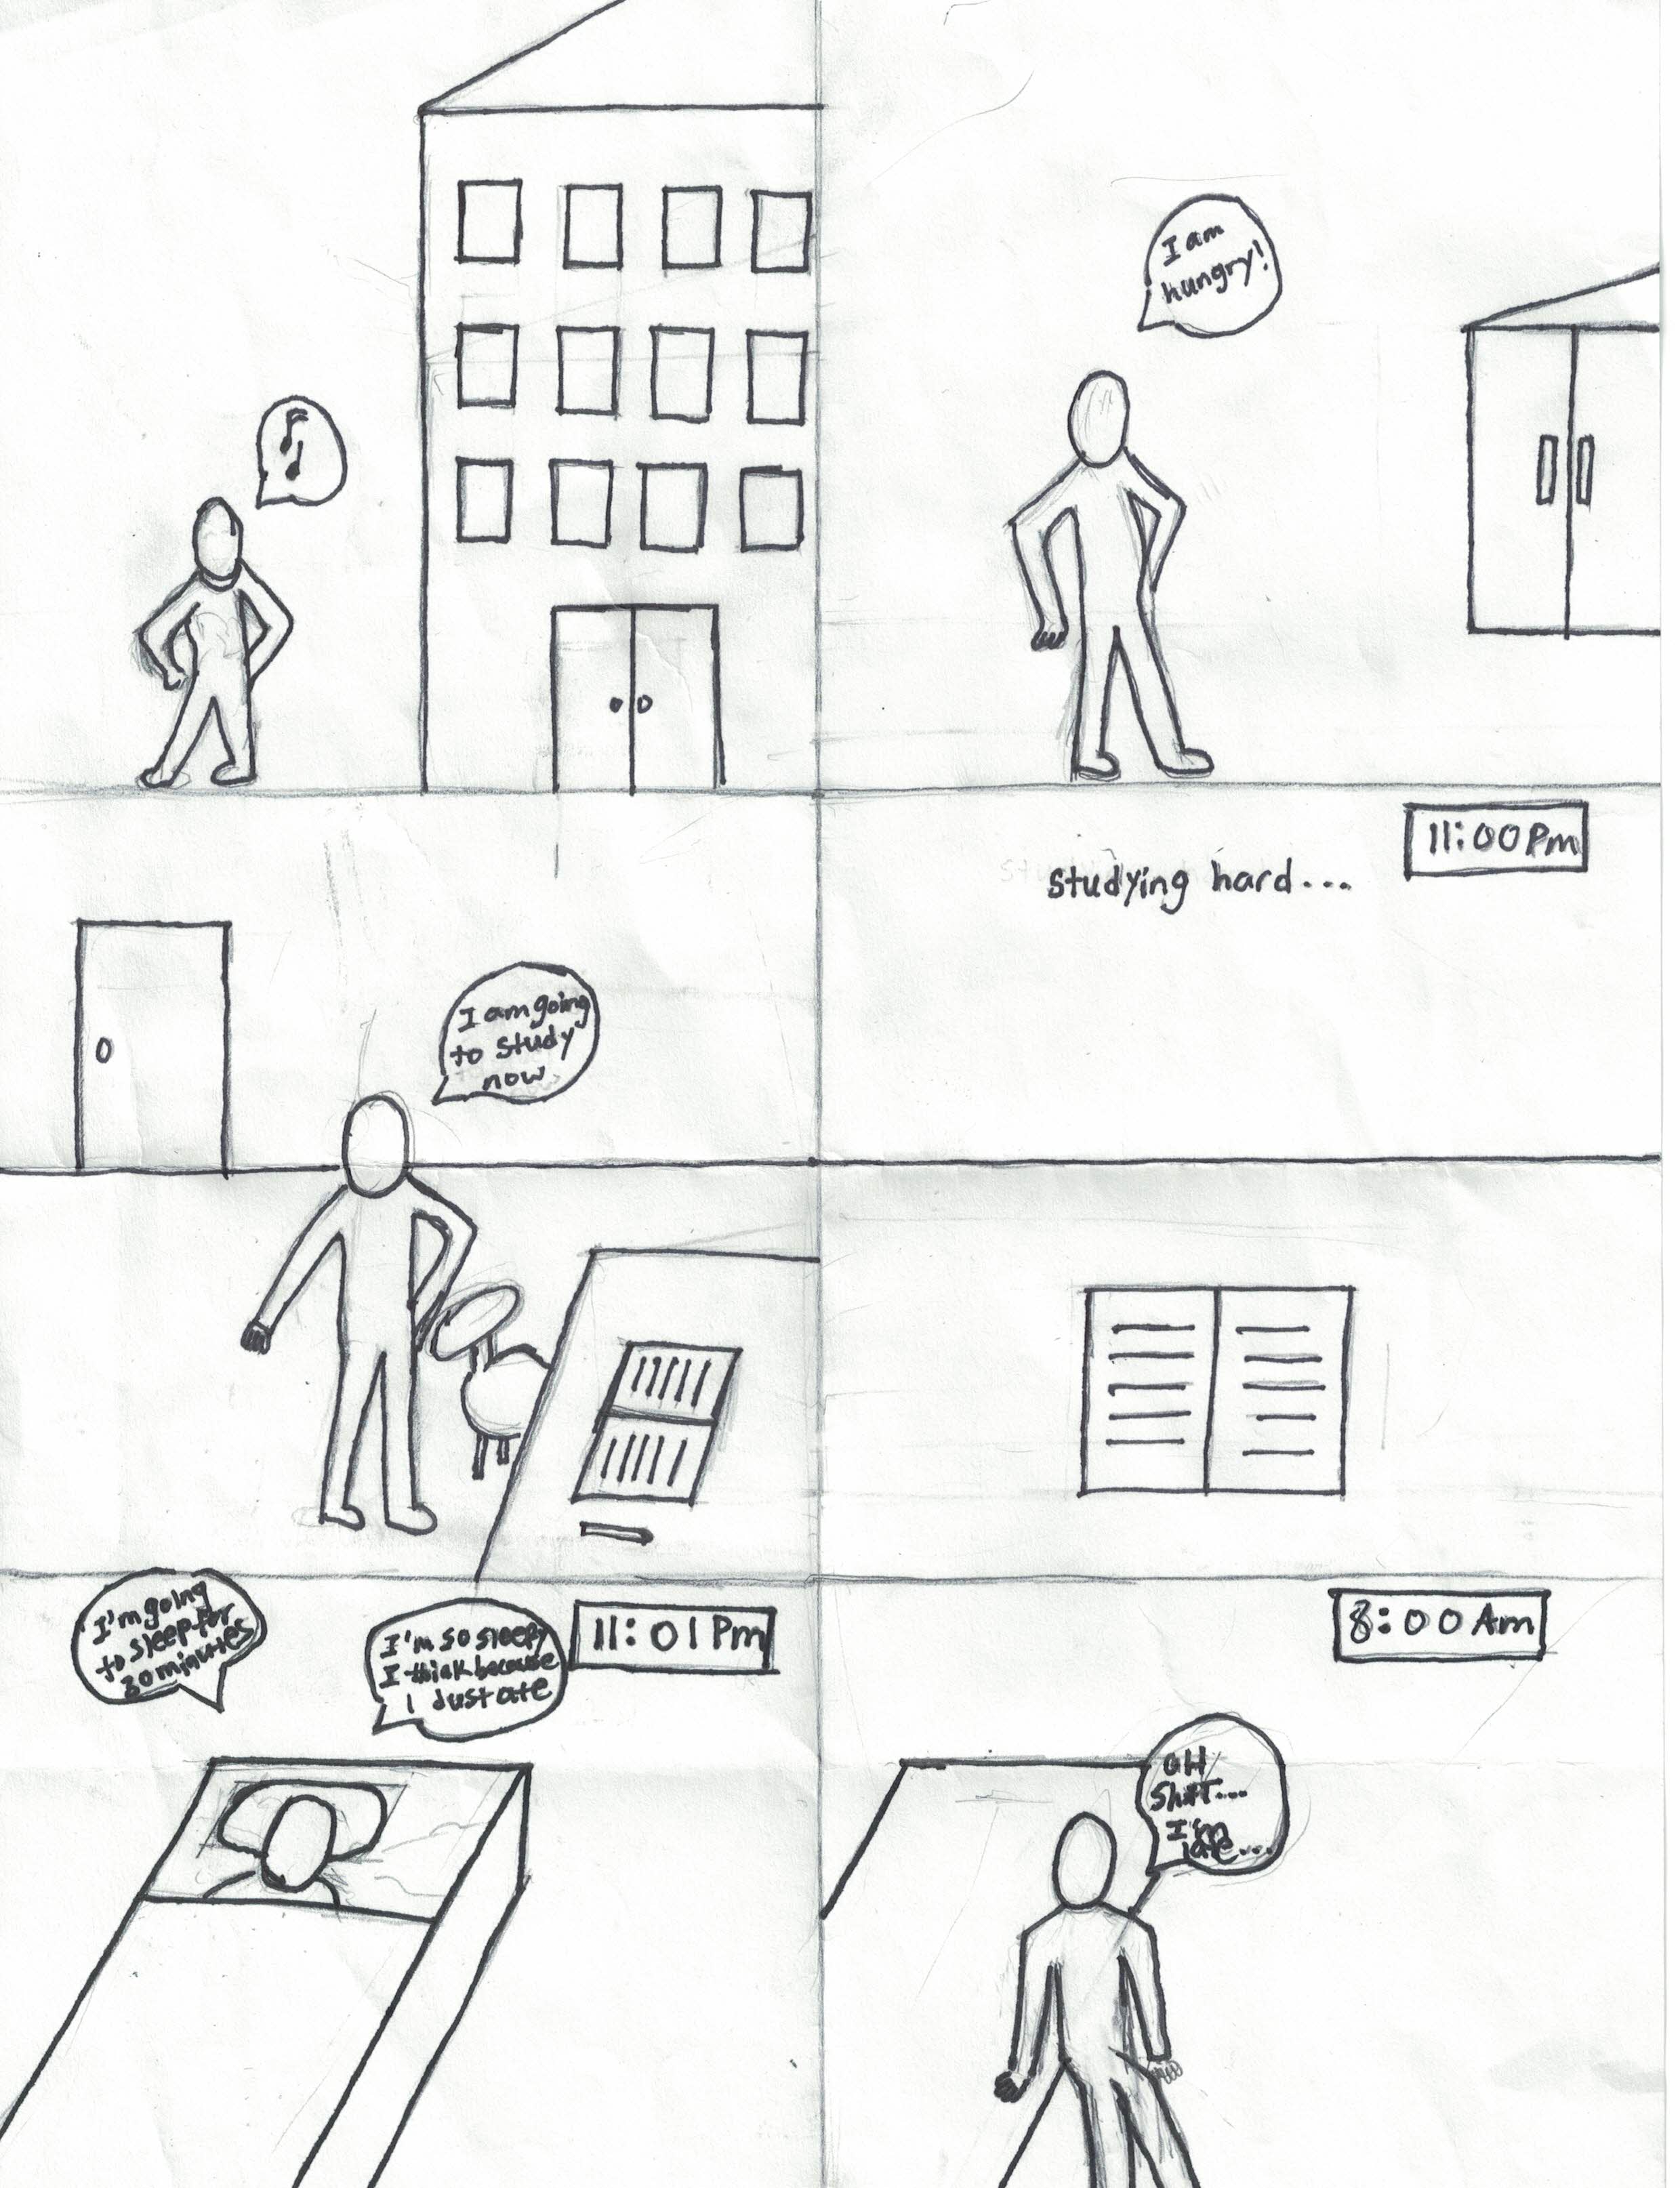 I am
hungry!
I am going
to study
now
11:00 Pm
studying hard...
I'm going
to sleep for
30 minutes
I'm so sleepy
I think because
I dust ate
11:01 Pm
8:00 Am
OH
ShiT....
I'm
late...